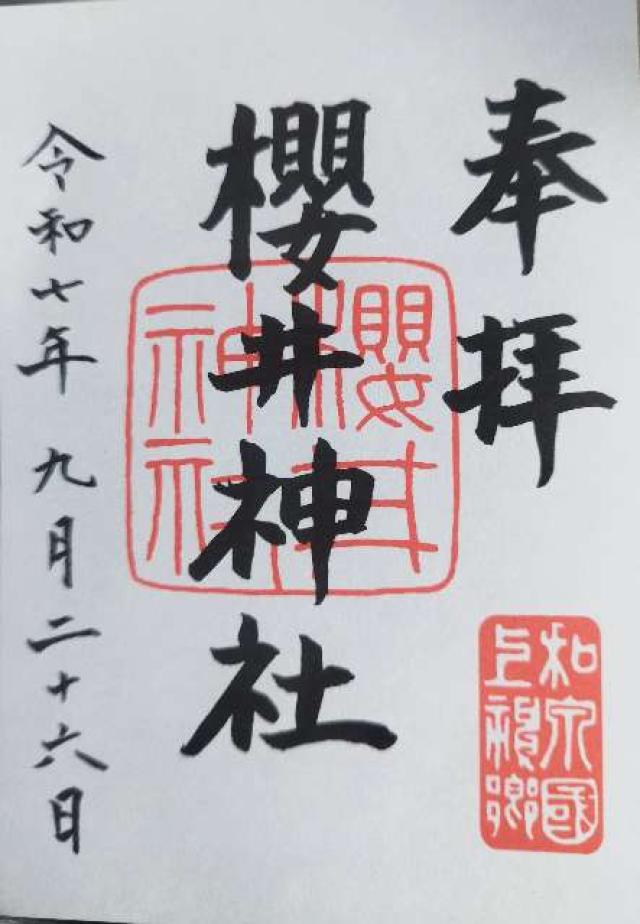 奉拝
櫻井神社
令和七年 九月二十六日
櫻井
神社
和泉國
上神郷